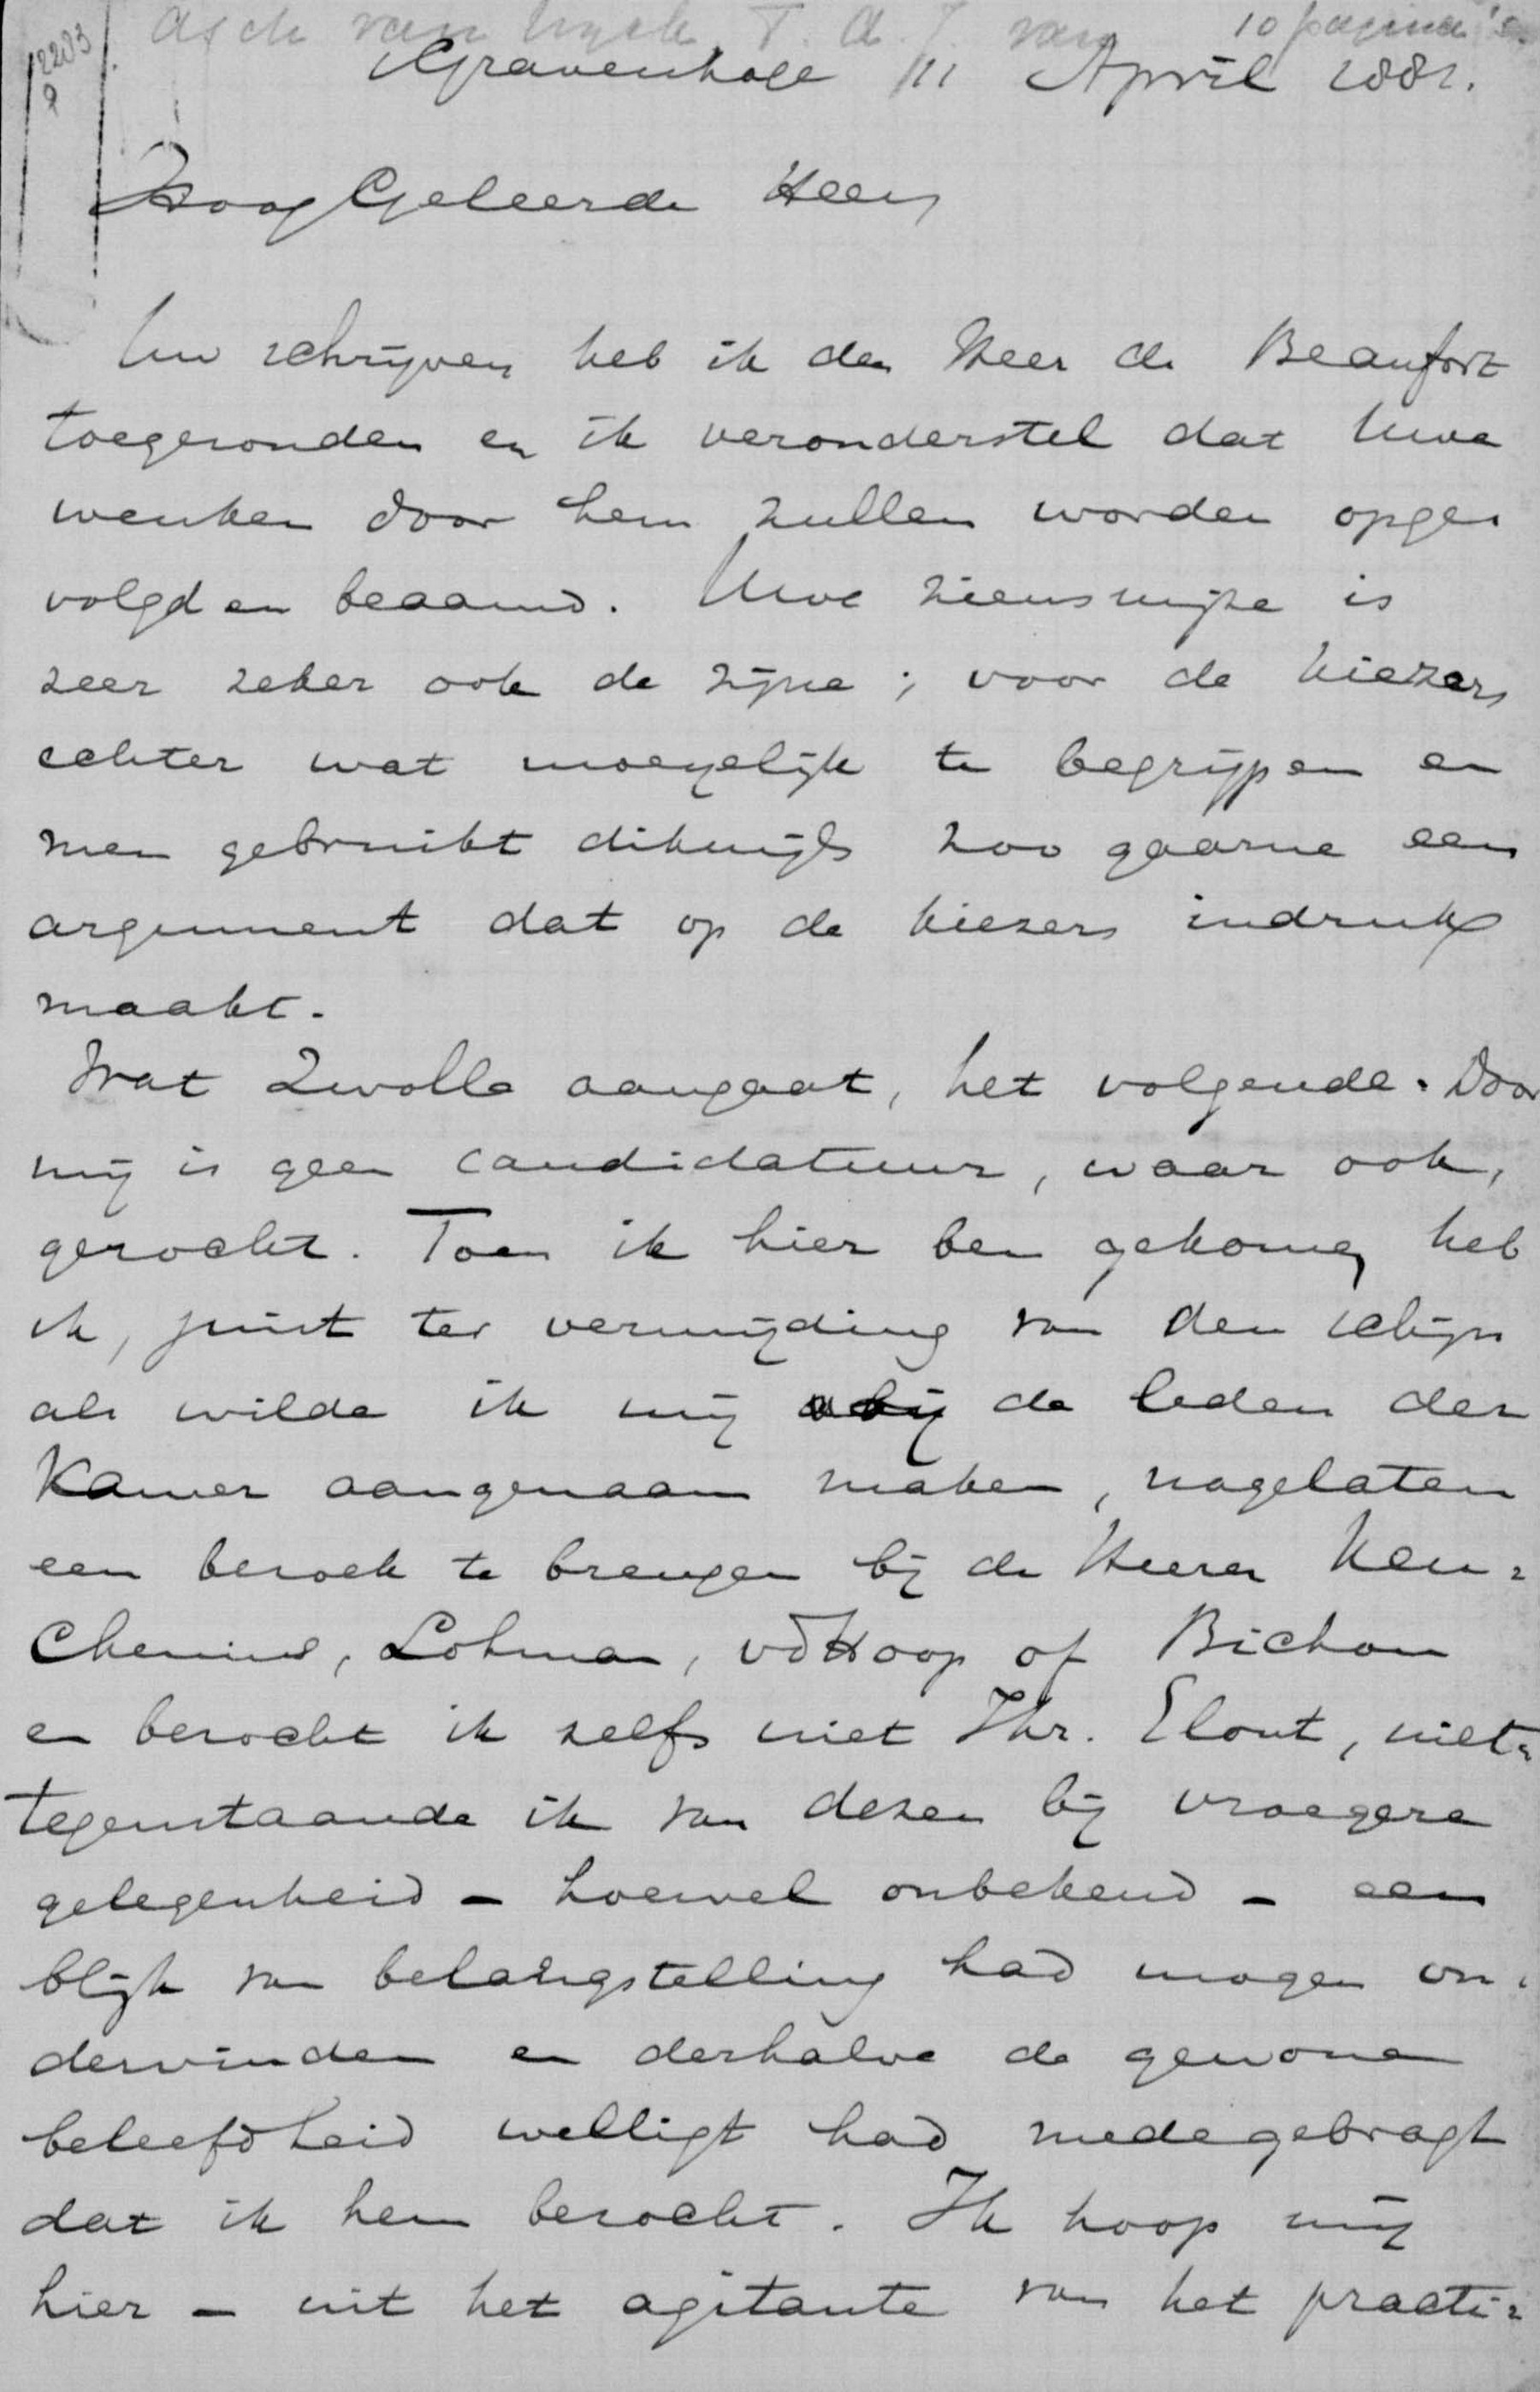 Asch van Wyck T. A. J. van 10 pagina's.
2203
9
'sGravenhage 11 April 1882.
HoogGeleerde Heer,
Uw schrijven heb ik den Heer de Beaufort
toegezonden en ik veronderstel dat Uwe
wenken door hem zullen worden opge-
volgd en beaamd. Uwe zienswijze is
zeer zeker ook de zijne; voor de kiezers
echter wat moeyelijk te begrijpen en
men gebruikt dikwijls zoo gaarne een
argument dat op de kiezers indruk
maakt.
Wat Zwolle aangaat, het volgende. Door
mij is geen candidatuur, waar ook,
gezocht. Toen ik hier ben gekomen heb
ik, juist ter vermijding van den schijn
als wilde ik mij bij de leden der
Kamer aangenaam maken, nagelaten
een bezoek te brengen bij de Heeren Keu-
chenius, Lohman, vdHoop of Bichon
en bezocht ik zelfs niet Jhr. Elout, niet-
tegenstaande ik van dezen bij vroegere
gelegenheid - hoewel onbekend - een
blijk van belangstelling had mogen on-
dervinden en derhalve de gewone
beleefdheid welligt had medegebragt
dat ik hem bezocht. Ik hoop mij
hier - uit het agitante van het practi-